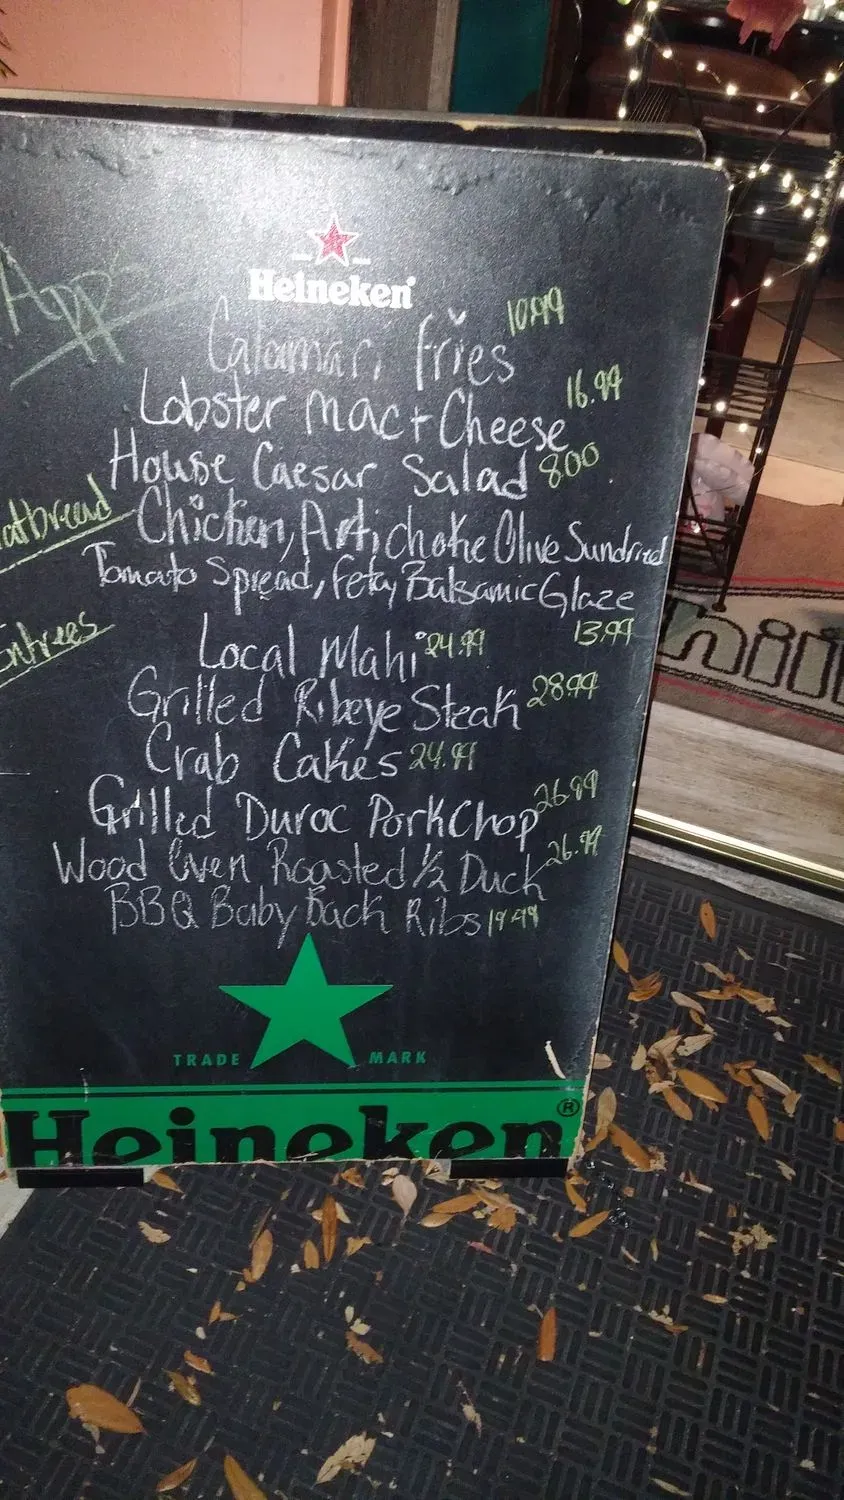 Heineken
Apps
Calamari fries 10.99
Lobster Mac + Cheese 16.99
House Caesar Salad 8.00
Chicken, Artichoke Olive Sundried
Tomato Spread, Feta, Balsamic Glaze
13.99
Entrees
Local Mahi 24.99
Grilled Ribeye Steak 28.99
Crab Cakes 24.99
Grilled Duroc Pork Chop 26.99
Wood Oven Roasted 1/2 Duck 26.99
BBQ Baby Back Ribs 19.99
TRADE MARK
Heineken®